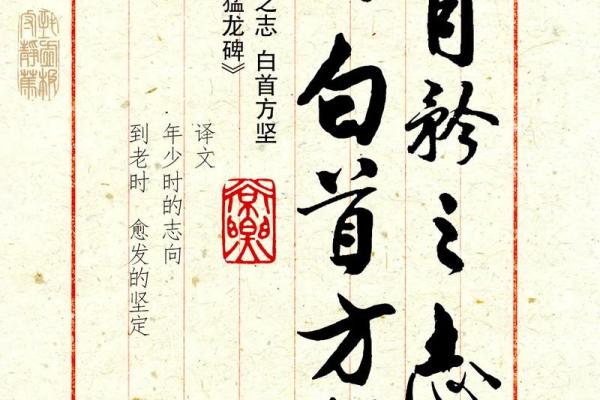 衿之志
白首方
之志 白首方坚
猛龙碑》
译文
年少时的志向
到老时 愈发的坚定
致虛極
守靜篤